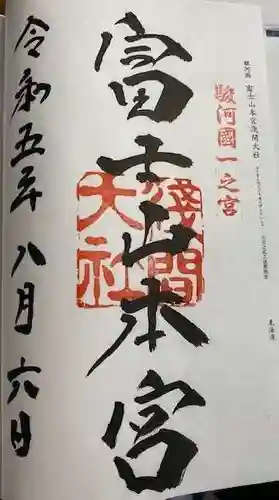 駿河國 富士山本宮浅間大社
駿河國一之宮
富士山本宮
淺間大社
令和五年八月六日
東海道